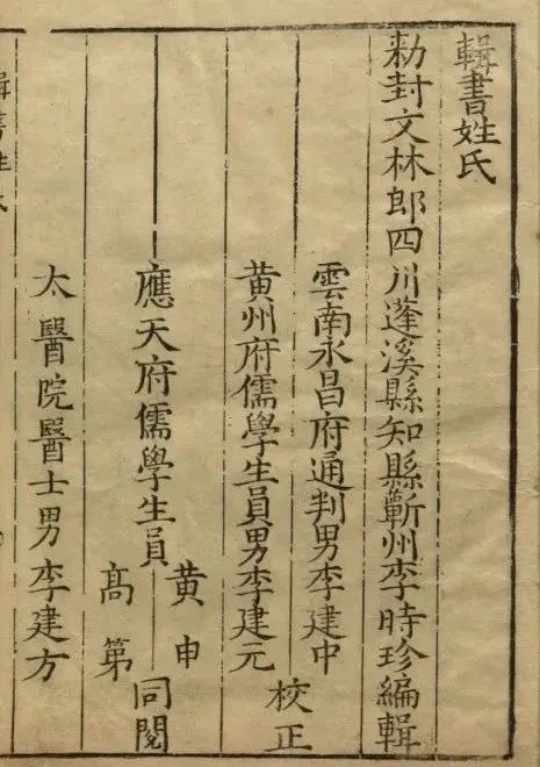 輯書姓氏
勑封文林郎四川蓬溪縣知縣蘄州李時珍編輯
雲南永昌府通判男李建中
黄州府儒學生員男李建元
校正
應天府儒學生員
黄申
高第
同閱
太醫院醫士男李建方
輯書姓氏